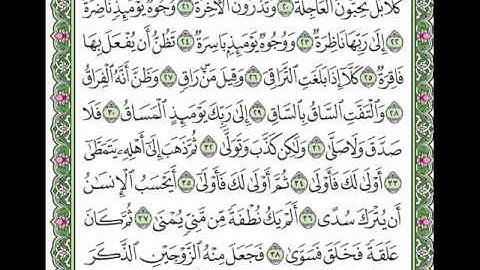 كَلَّا بَلْ تُحِبُّونَ ٱلْعَاجِلَةَ ٢٠ وَتَذَرُونَ ٱلْآخِرَةَ ٢١ وُجُوهٌ يَوْمَئِذٍ نَّاضِرَةٌ
٢٢ إِلَىٰ رَبِّهَا نَاظِرَةٌ ٢٣ وَوُجُوهٌ يَوْمَئِذٍ بَاسِرَةٌ ٢٤ تَظُنُّ أَن يُفْعَلَ بِهَا
فَاقِرَةٌ ٢٥ كَلَّا إِذَا بَلَغَتِ ٱلتَّرَاقِيَ ٢٦ وَقِيلَ مَنْ رَاقٍ ٢٧ وَظَنَّ أَنَّهُ ٱلْفِرَاقُ
٢٨ وَٱلْتَفَّتِ ٱلسَّاقُ بِٱلسَّاقِ ٢٩ إِلَىٰ رَبِّكَ يَوْمَئِذٍ ٱلْمَسَاقُ ٣٠ فَلَا
صَدَّقَ وَلَا صَلَّىٰ ٣١ وَلَٰكِن كَذَّبَ وَتَوَلَّىٰ ٣٢ ثُمَّ ذَهَبَ إِلَىٰ أَهْلِهِۦ يَتَمَطَّىٰ
٣٣ أَوْلَىٰ لَكَ فَأَوْلَىٰ ٣٤ ثُمَّ أَوْلَىٰ لَكَ فَأَوْلَىٰ ٣٥ أَيَحْسَبُ ٱلْإِنسَٰنُ
أَن يُتْرَكَ سُدًى ٣٦ أَلَمْ يَكُ نُطْفَةً مِّن مَّنِيٍّ يُمْنَىٰ ٣٧ ثُمَّ كَانَ
عَلَقَةً فَخَلَقَ فَسَوَّىٰ ٣٨ فَجَعَلَ مِنْهُ ٱلزَّوْجَيْنِ ٱلذَّكَرَ